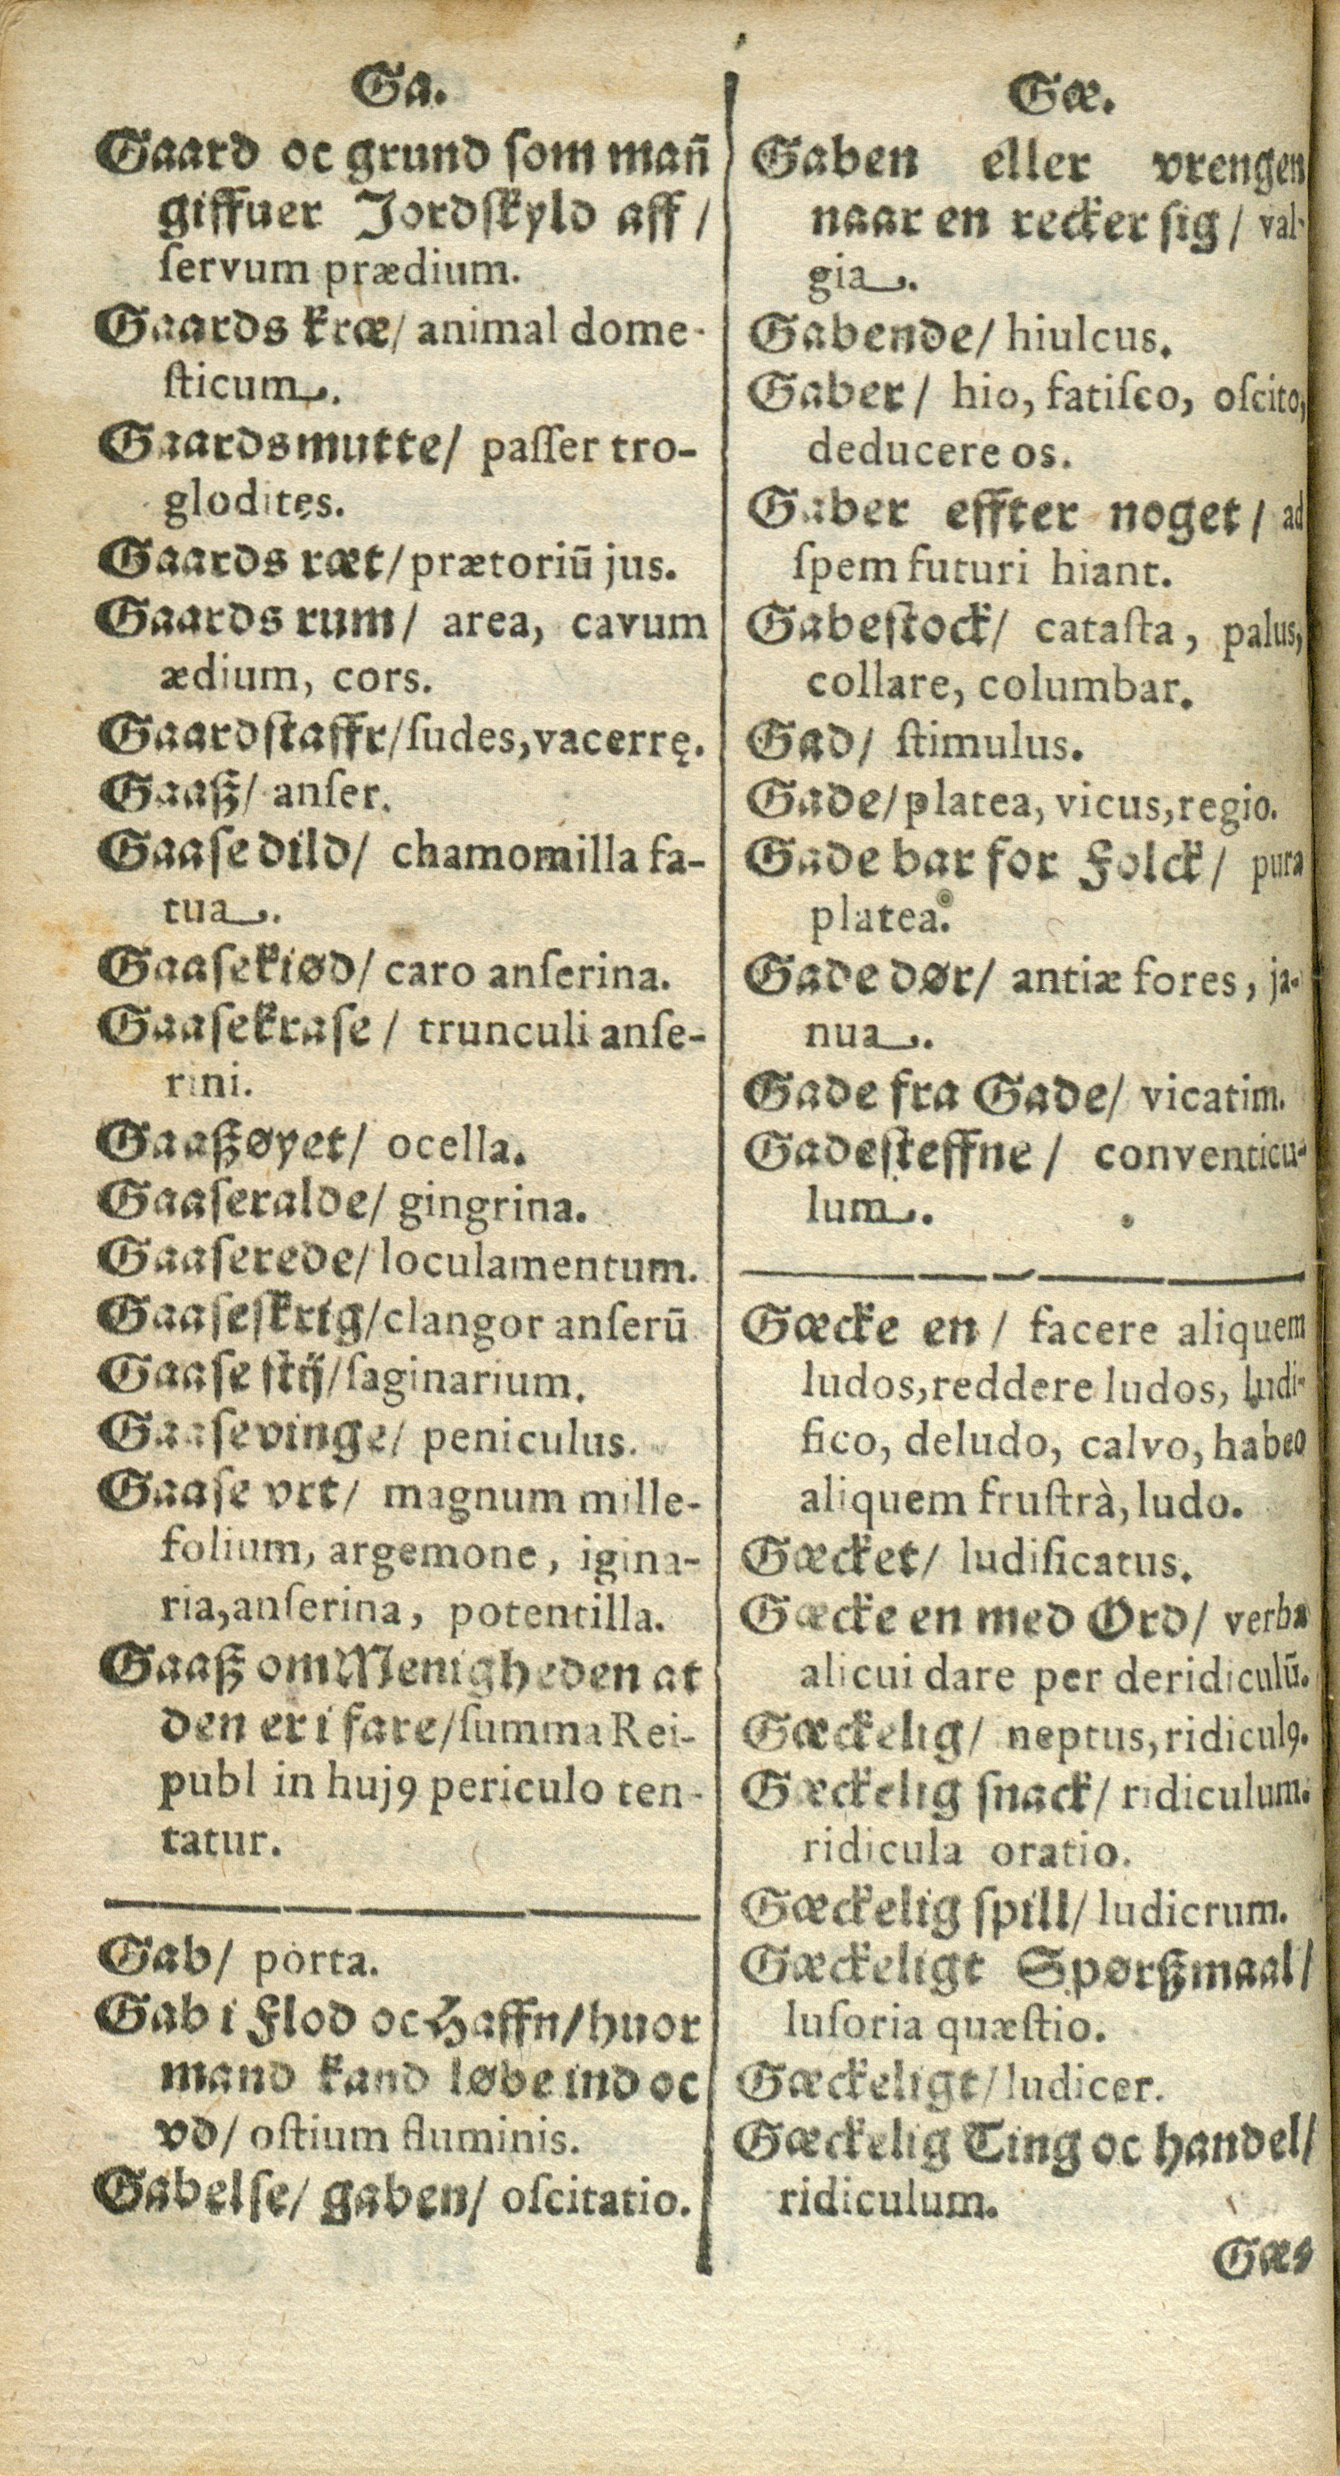 Ga.
Gaard oc grund ſom mañ
giffuer Jordſkyld aff /
ſervum prædium.
Gaards kræ/ animal dome-
ſticum.
Gaardsmutte/ paſſer tro-
glodites.
Gaards ræt/prætoriū jus.
Gaards rum/ area, cavum
ædium, cors.
Gaardſtaffr/ſudes,vacerrę.
Gaaß/ anſer.
Gaaſe dild/ chamomilla fa-
tua.
Gaaſekiød/ caro anſerina.
Gaaſekraſe/ trunculi anſe-
rini.
Gaaßøyet/ ocella.
Gaaſeralde/ gingrina.
Gaaſerede/loculamentum.
Gaaſeſkrig/clangor anſerū
Gaaſe ſtij/ſaginarium.
Gaaſevinge/ peniculus.
Gaaſe vrt/ magnum mille-
folium, argemone, igina-
ria,anſerina, potentilla.
Gaaß om Menigheden at
den er i fare/ſumma Rei-
publ in hujꝰ periculo ten-
tatur.
Gab/ porta.
Gab i Flod oc Haffn/huor
mand kand løbe ind oc
vd/ oſtium fluminis.
Gabelſe/ gaben/ oſcitatio.
Gæ.
Gaben eller vrengen
naar en recker ſig/ val-
gia.
Gabende/ hiulcus.
Gaber/ hio, fatiſco, oſcito,
deducere os.
Gaber effter noget/ ad
ſpem futuri hiant.
Gabeſtock/ cataſta, palus,
collare, columbar.
Gad/ ſtimulus.
Gade/platea, vicus,regio.
Gade bar for Folck/ pura
platea.
Gade dør/ antiæ fores, ja-
nua.
Gade fra Gade/ vicatim.
Gadeſteffne/ conventicu-
lum.
Gæcke en/ facere aliquem
ludos,reddere ludos, ludi-
fico, deludo, calvo, habeo
aliquem fruſtrà, ludo.
Gæcket/ ludificatus.
Gæcke en med Ord/ verba
alicui dare per deridiculū.
Gæckelig/ neptus,ridiculꝰ.
Gæckelig ſnack/ ridiculum.
ridicula oratio.
Gæckelig ſpill/ ludicrum.
Gæckeligt Spørßmaal/
luſoria quæſtio.
Gæckeligt/ludicer.
Gæckelig Ting oc handel/
ridiculum.
Gæs